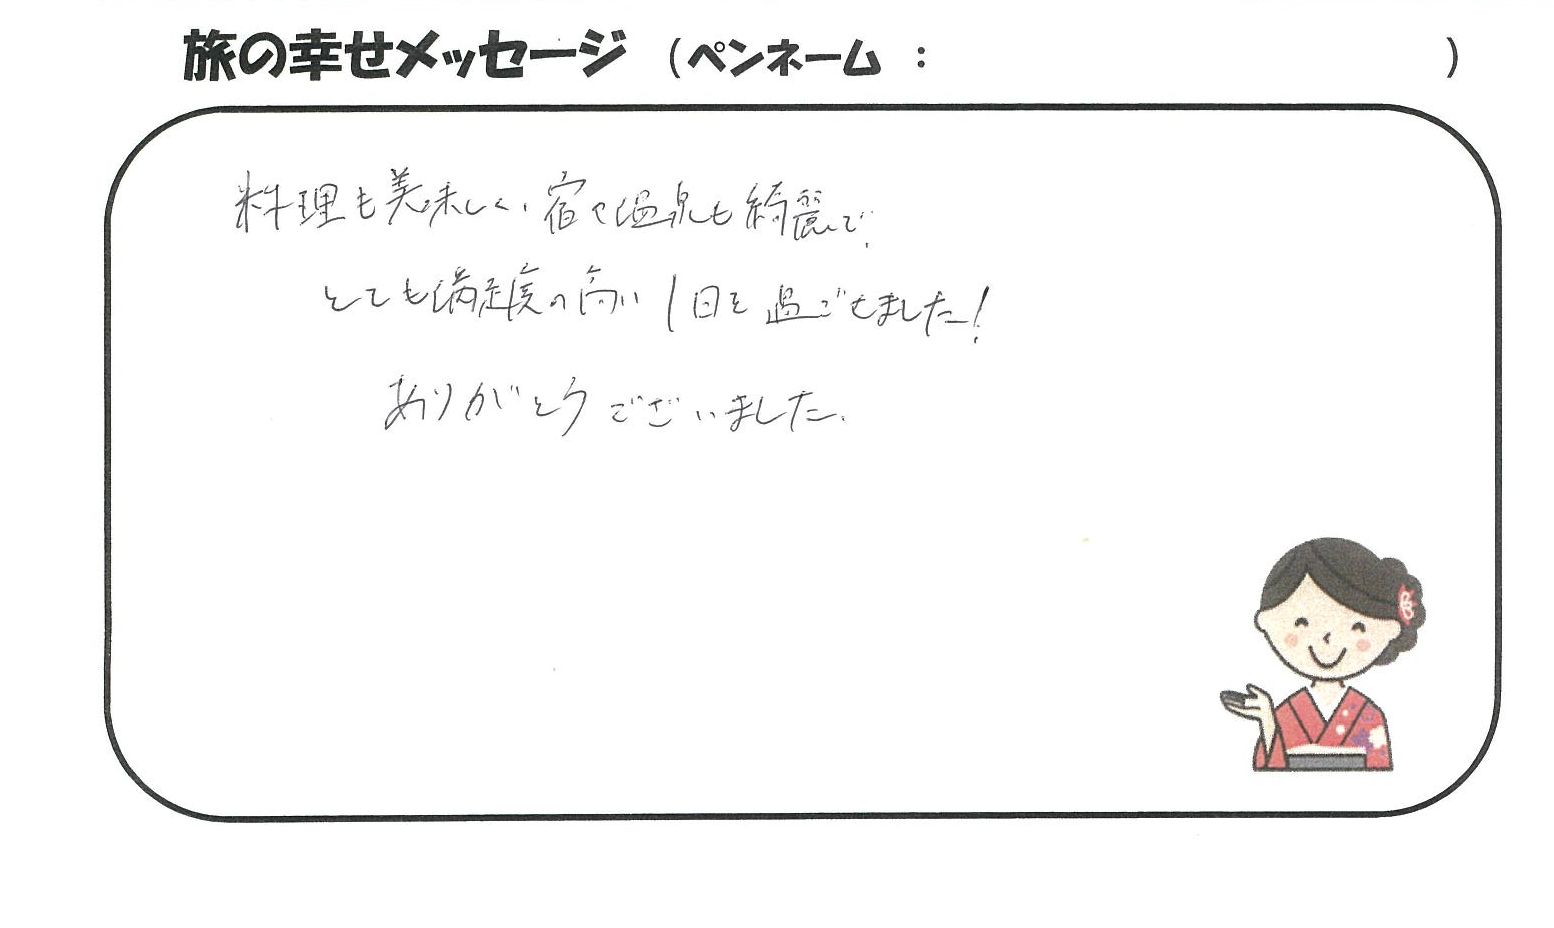 旅の幸せメッセージ （ペンネーム ： ）
料理も美味しく、宿や温泉も綺麗で、
とても満足度の高い1日を過ごせました！
ありがとうございました。